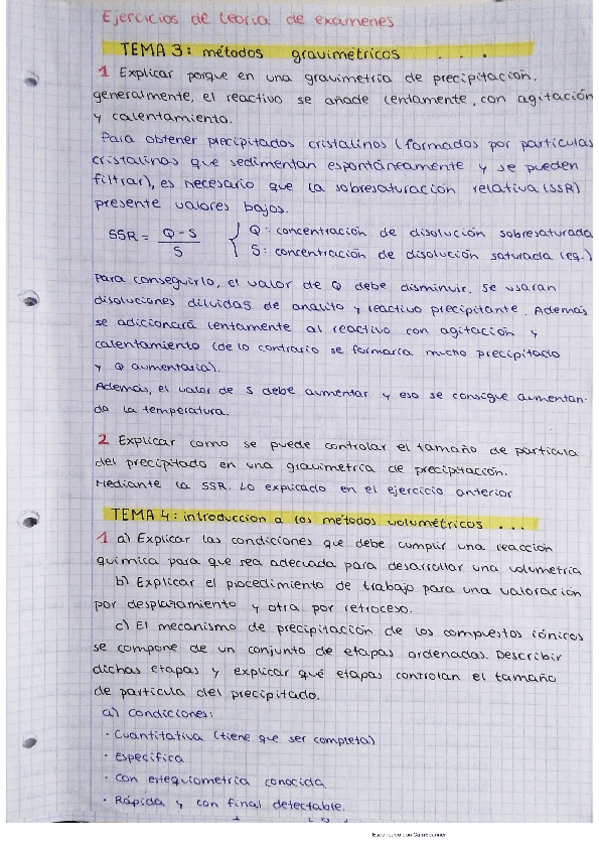 Ejercicios de teoría de exámenes
TEMA 3: métodos gravimétricos ...
1 Explicar porque en una gravimetría de precipitación,
generalmente, el reactivo se añade lentamente, con agitación
y calentamiento.
Para obtener precipitados cristalinos (formados por partículas
cristalinas que sedimentan espontáneamente y se pueden
filtrar), es necesario que la sobresaturación relativa (SSR)
presente valores bajos.
SSR = Q-S / S { Q: concentración de disolución sobresaturada
S: concentración de disolución saturada (eq.)
Para conseguirlo, el valor de Q debe disminuir. Se usaran
disoluciones diluidas de analito y reactivo precipitante. Además
se adicionará lentamente al reactivo con agitación y
calentamiento (de lo contrario se formaría mucho precipitado
y Q aumentaría).
Además, el valor de S debe aumentar y eso se consigue aumentan-
do la temperatura.
2 Explicar como se puede controlar el tamaño de partícula
del precipitado en una gravimetría de precipitación.
Mediante la SSR. Lo explicado en el ejercicio anterior
TEMA 4: introducción a los métodos volumétricos ...
1 a) Explicar las condiciones que debe cumplir una reacción
química para que sea adecuada para desarrollar una volumetría
b) Explicar el procedimiento de trabajo para una valoración
por desplazamiento y otra por retroceso.
c) El mecanismo de precipitación de los compuestos iónicos
se compone de un conjunto de etapas ordenadas. Describir
dichas etapas y explicar qué etapas controlan el tamaño
de partícula del precipitado.
a) Condiciones:
· Cuantitativa (tiene que ser completa)
· Específica
· Con estequiometría conocida.
· Rápida y con final detectable.